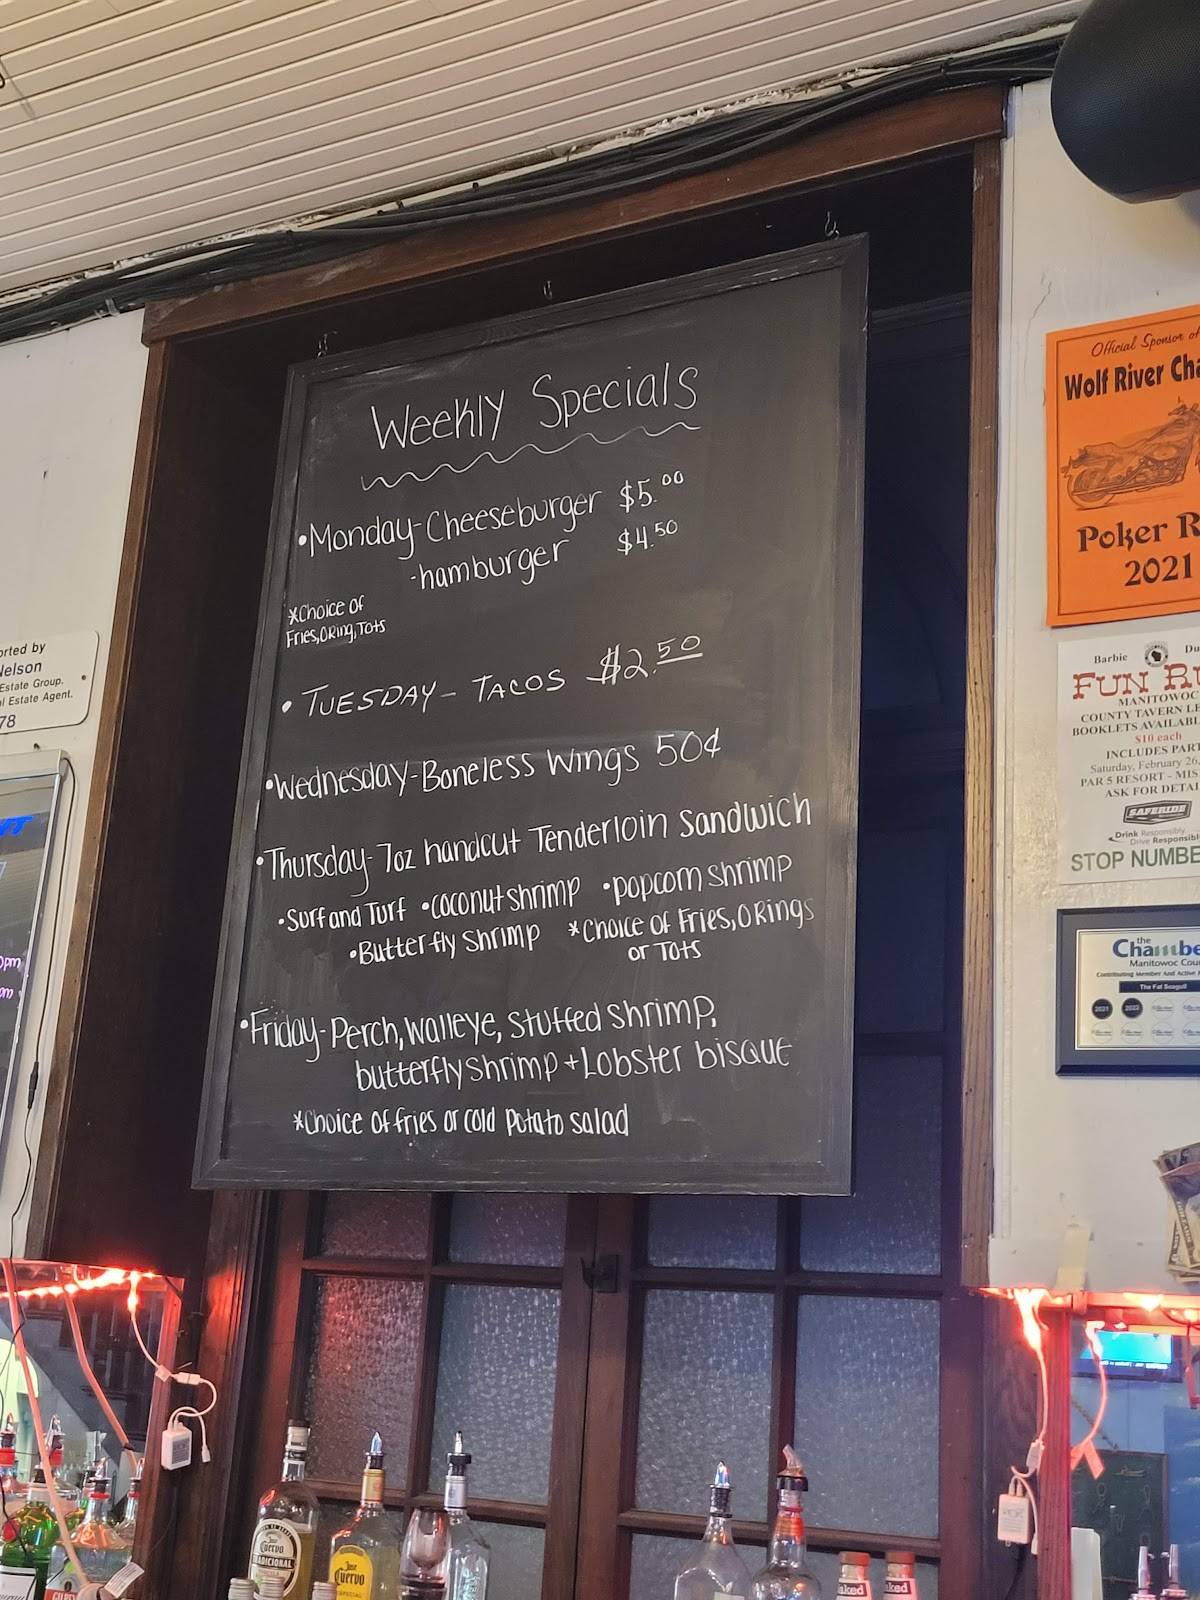 Weekly Specials
•Monday-Cheeseburger $5.00
-hamburger $4.50
*Choice of
Fries, O Ring, Tots
• TUESDAY - TACOS $2.50
•Wednesday-Boneless Wings 50¢
•Thursday-7oz handcut Tenderloin Sandwich
•Surf and Turf •coconut shrimp •popcorn shrimp
•Butterfly Shrimp *Choice of Fries, O Rings
or Tots
•Friday-Perch, Walleye, Stuffed Shrimp,
butterfly shrimp + Lobster bisque
*Choice of fries or cold Potato salad
Official Sponsor of
Wolf River Cha
Poker R
2021
Barbie Du
FUN RU
MANITOWOC
COUNTY TAVERN LE
BOOKLETS AVAILABL
$10 each
INCLUDES PART
Saturday, February 26,
PAR 5 RESORT - MIS
ASK FOR DETAI
Drink Responsibly
Drive Responsible
STOP NUMBE
the
Chambe
Manitowoc Coun
Contributing Member And Active
The Fat Seagull
2021 2022
orted by
Nelson
Estate Group.
l Estate Agent.
78
0pm
am
Jose
Cuervo
TRADICIONAL
Jose
Cuervo
ESPECIAL
aked
aked